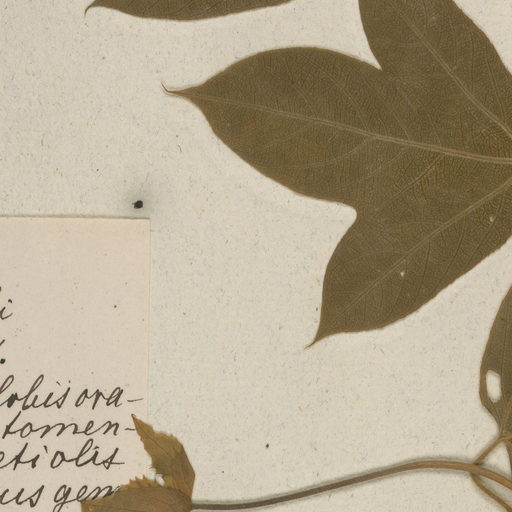 lobis ora-
tomen-
etiolis
us gem